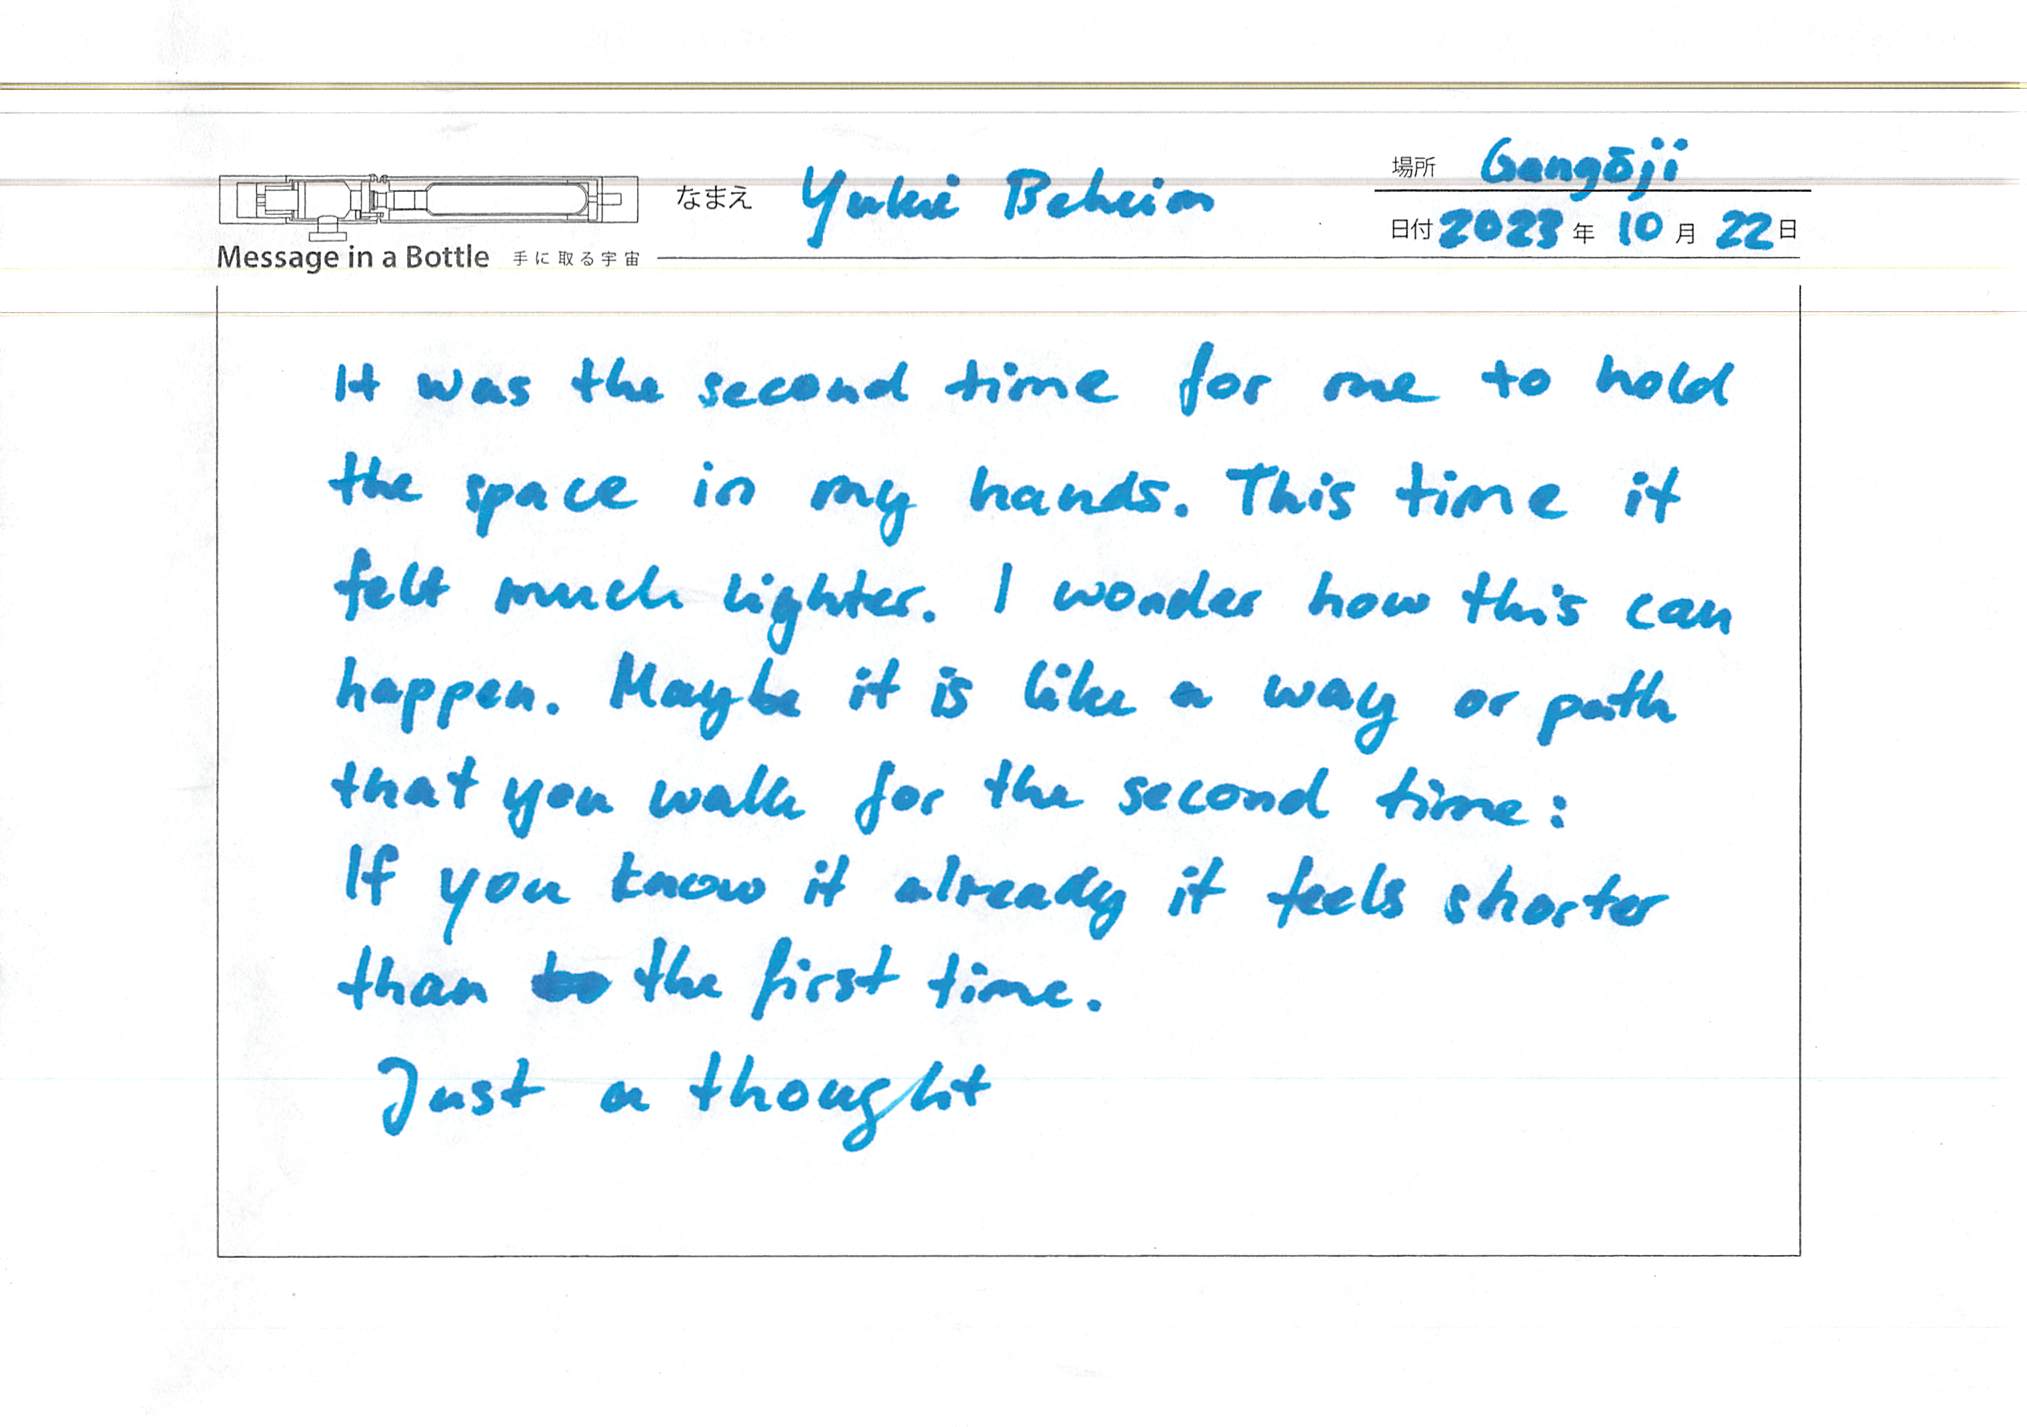 場所 Gangōji
なまえ Yukie Beheim
日付 2023 年 10 月 22 日
Message in a Bottle 手に取る宇宙
It was the second time for me to hold
the space in my hands. This time it
felt much lighter. I wonder how this can
happen. Maybe it is like a way or path
that you walk for the second time:
If you know it already it feels shorter
than the first time.
Just a thought